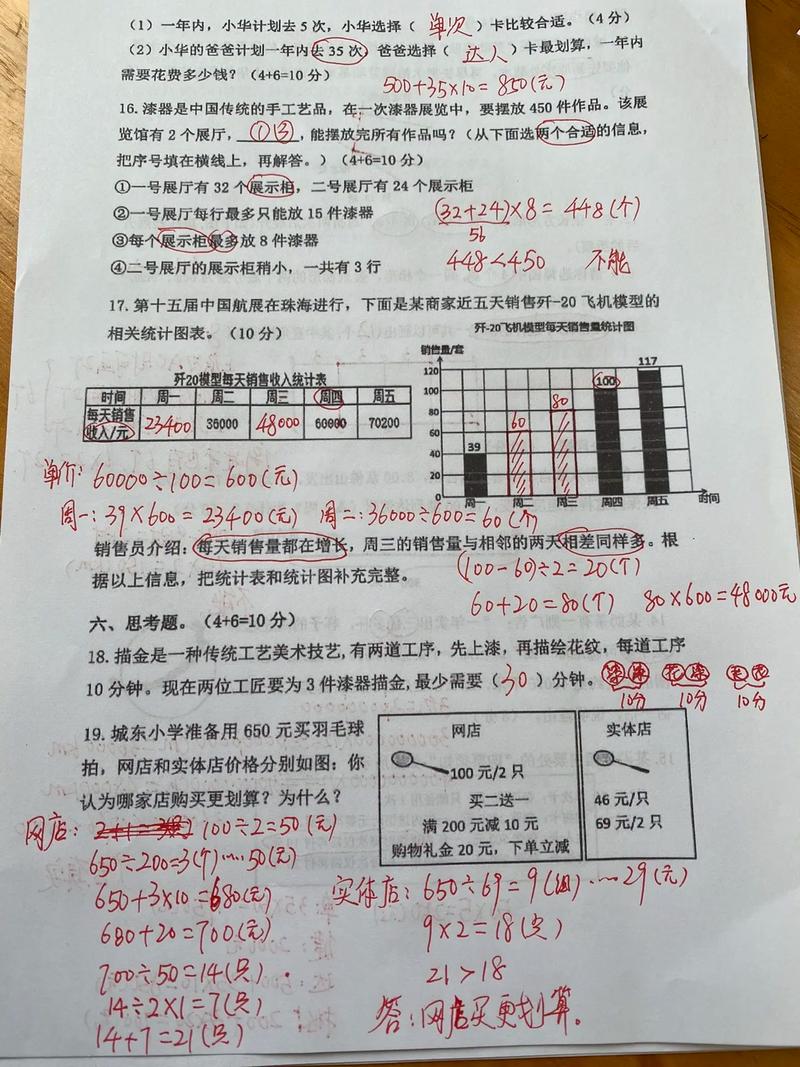 （1）一年内，小华计划去5次，小华选择（ 单次 ）卡比较合适。（4分）
（2）小华的爸爸计划一年内去35次，爸爸选择（ 达人 ）卡最划算，一年内
需要花费多少钱？（4+6=10分）
500+35×10=850(元)
16.漆器是中国传统的手工艺品，在一次漆器展览中，要摆放450件作品。该展
览馆有2个展厅，①③，能摆放完所有作品吗？（从下面选两个合适的信息，
把序号填在横线上，再解答。）（4+6=10分）
①一号展厅有32个展示柜，二号展厅有24个展示柜
②一号展厅每行最多只能放15件漆器
③每个展示柜最多放8件漆器
④二号展厅的展示柜稍小，一共有3行
(32+24)×8=448(个)
56
448<450 不能
17.第十五届中国航展在珠海进行，下面是某商家近五天销售歼-20飞机模型的
相关统计图表。（10分）
歼20模型每天销售收入统计表
时间 周一 周二 周三 周四 周五
每天销售收入/元 23400 36000 48000 60000 70200
歼-20飞机模型每天销售量统计图
销售量/套
120
100
80
60
40
20
0
39 60 80 100 117
周一 周二 周三 周四 周五 时间
单价：60000÷100=600(元)
周一：39×600=23400(元) 周二：36000÷600=60(个)
销售员介绍：每天销售量都在增长，周三的销售量与相邻的两天相差同样多。根
据以上信息，把统计表和统计图补充完整。
(100-60)÷2=20(个)
60+20=80(个) 80×600=48000元
六、思考题。（4+6=10分）
18.描金是一种传统工艺美术技艺,有两道工序，先上漆，再描绘花纹，每道工序
10分钟。现在两位工匠要为3件漆器描金,最少需要（ 30 ）分钟。
漆 漆 花 漆 花 花
10分 10分 10分
19.城东小学准备用650元买羽毛球
拍，网店和实体店价格分别如图：你
认为哪家店购买更划算？为什么？
网店
100元/2只
买二送一
满200元减10元
购物礼金20元，下单立减
实体店
46元/只
69元/2只
网店： 100÷2=50(元)
650÷200=3(个)……50(元)
650+3×10=680(元)
680+20=700(元)
700÷50=14(只)
14÷2×1=7(只)
14+7=21(只)
实体店：650÷69=9(组)……29(元)
9×2=18(只)
21>18
答：网店买更划算。